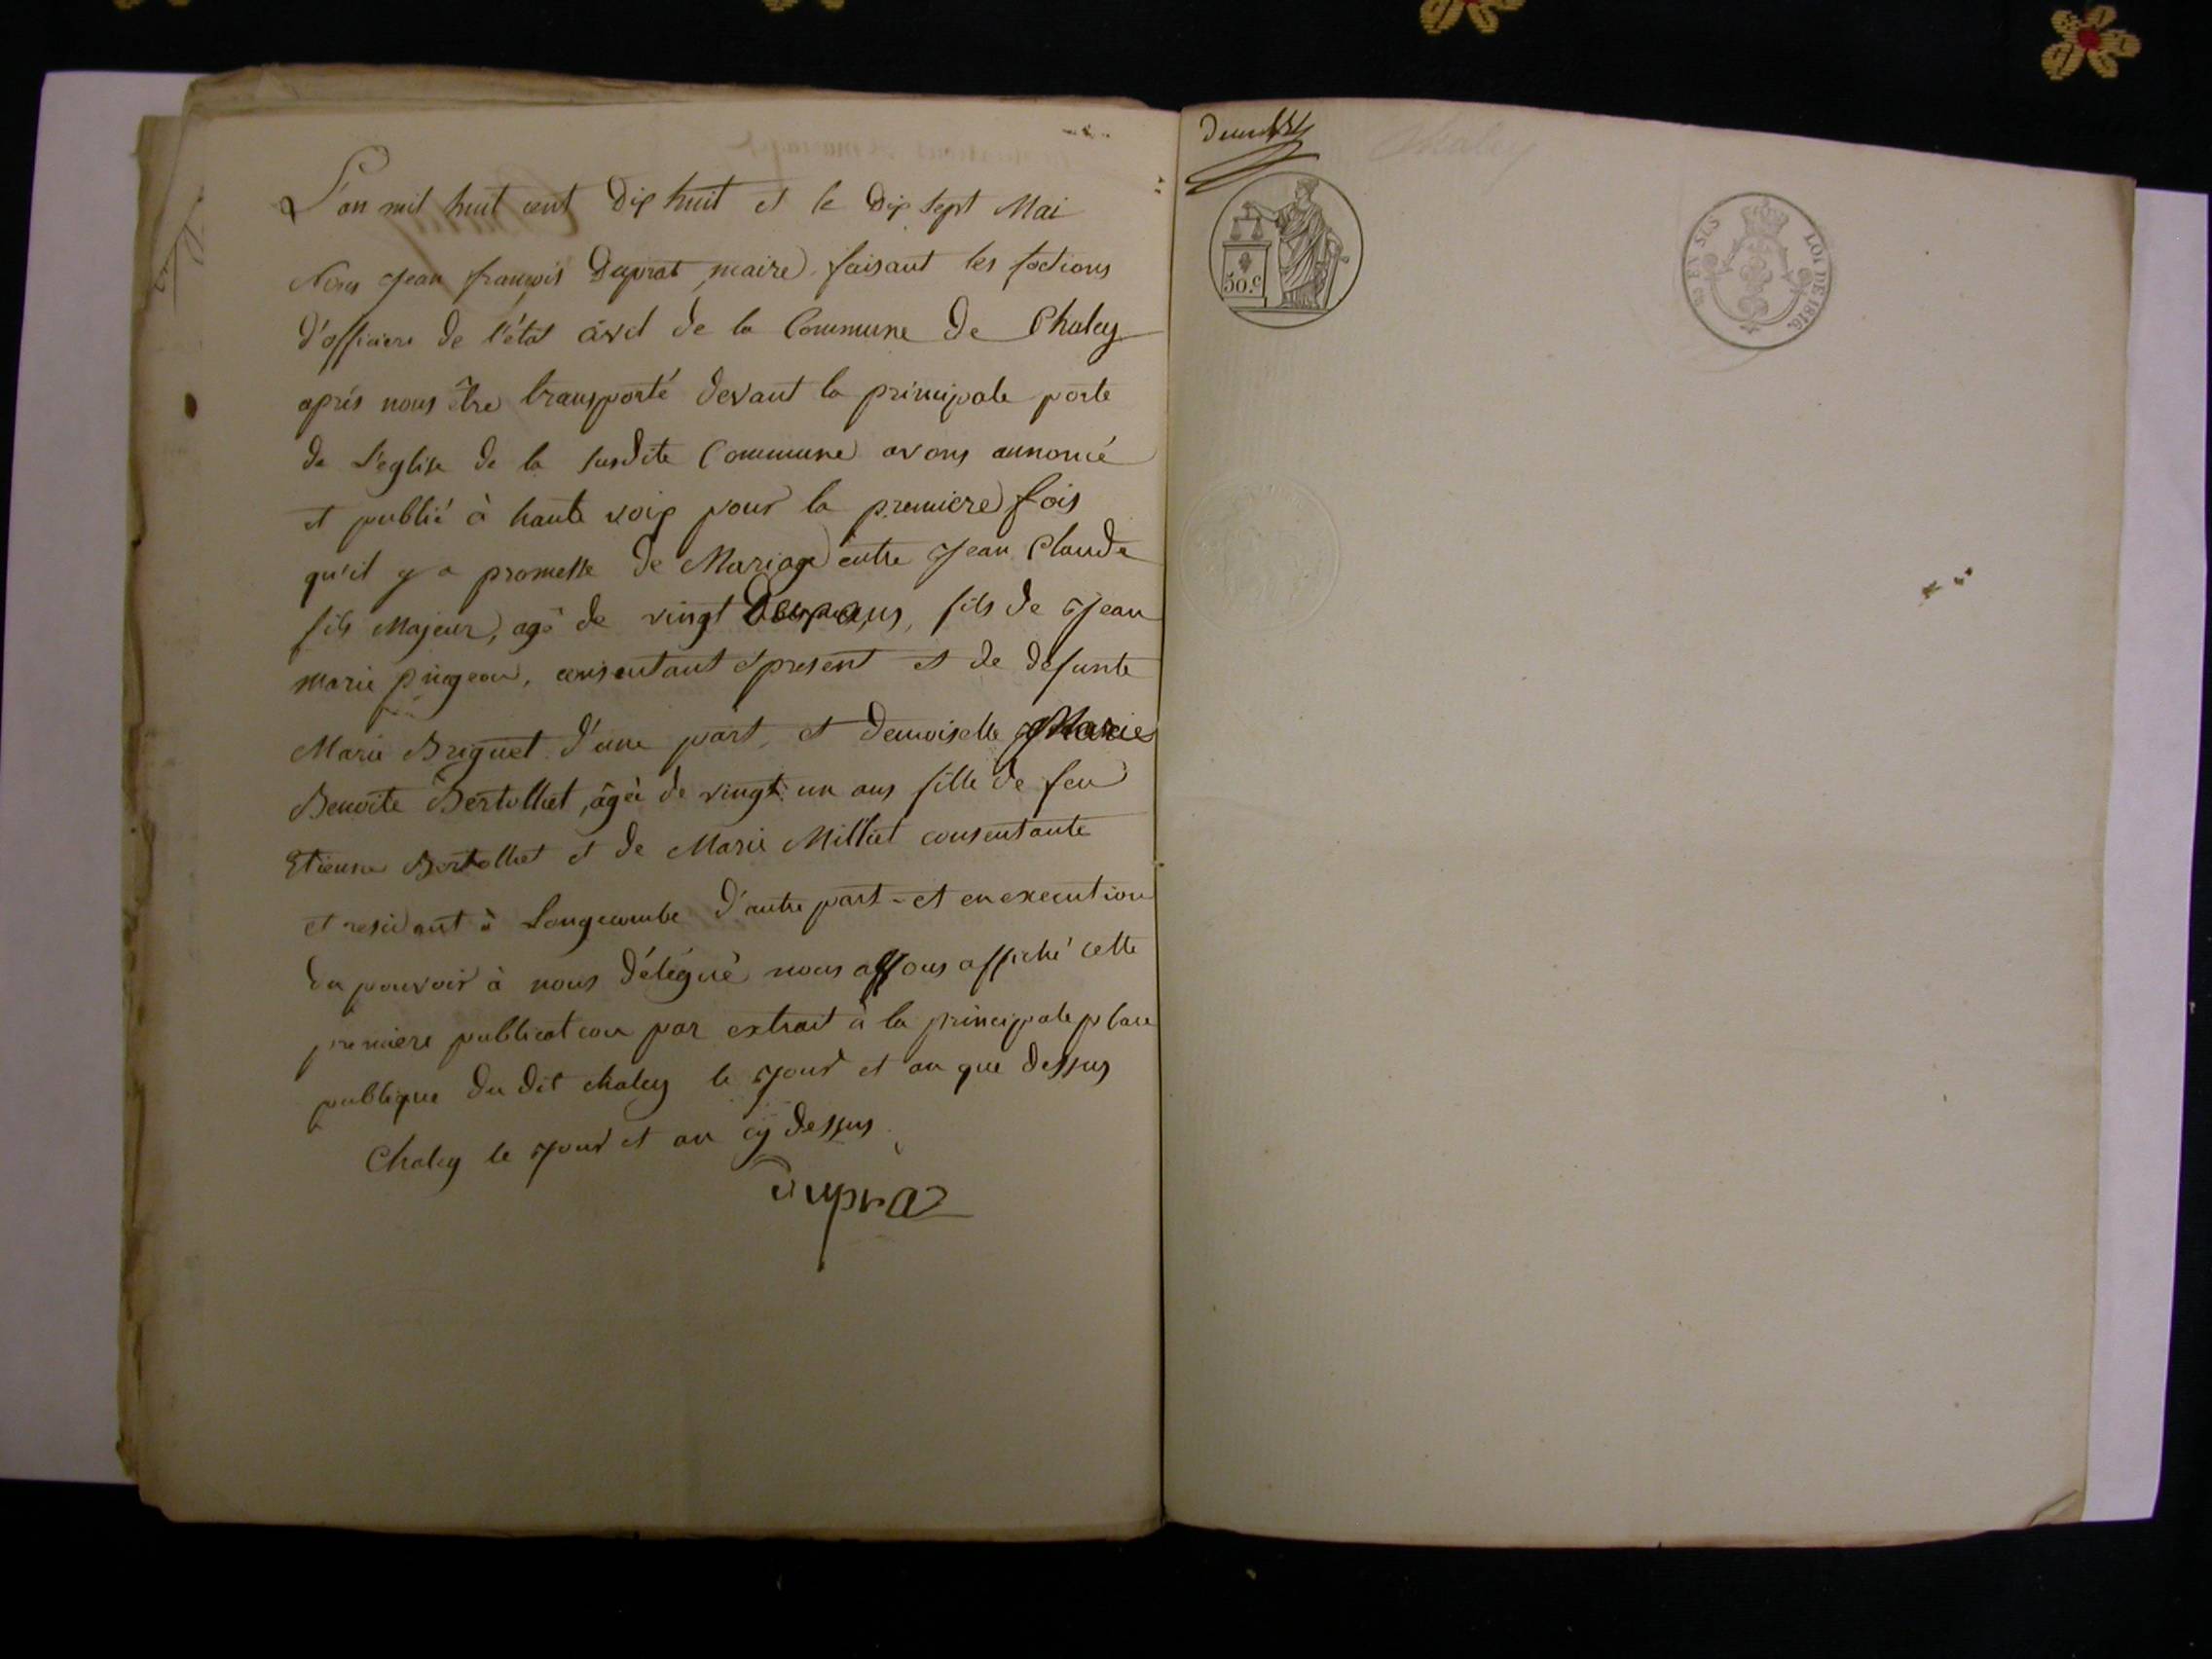 L'an mil huit cent dix huit et le dix sept Mai
Nous Jean françois Duprat, maire faisant les foctions
d'officiere de l'état civil de la Commune de Chaley
aprés nous être transporté devant la principale porte
de L'eglise de la susdite Commune avons annoncé
et publié à haute voix pour la premiere fois
qu'il y a promesse de Mariage entre Jean Claude
fils Majeur, agé de vingt ans, fils de Jean
marie pingeon, consentant et present et de defunte
Marie Briguet d'une part, et demoiselle Marie
Benoite Bertolliet, âgée de vingt un ans fille de feu
Etienne Bertolliet et de Marie Milliet consentante
et residant à Longecombe d'autre part - et en execution
du pouvoir à nous délégué nous avons affiché cette
premiere publication par extrait à la principale place
publique du dit chaley le jour et an que dessus
Chaley le jour et an cy dessus.
Dupraz
50.c
EN SUS
LOI DE 1816.